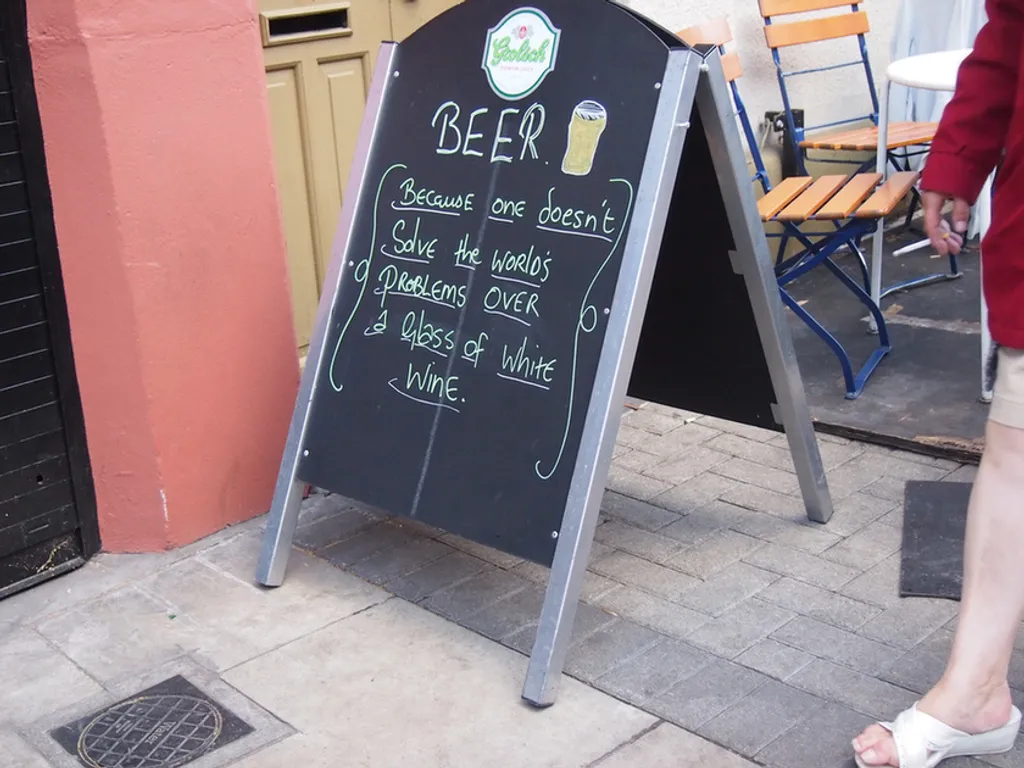 Grolsch
BEER.
Because one doesn't
Solve the world's
Problems over
a Glass of White
Wine.
Water